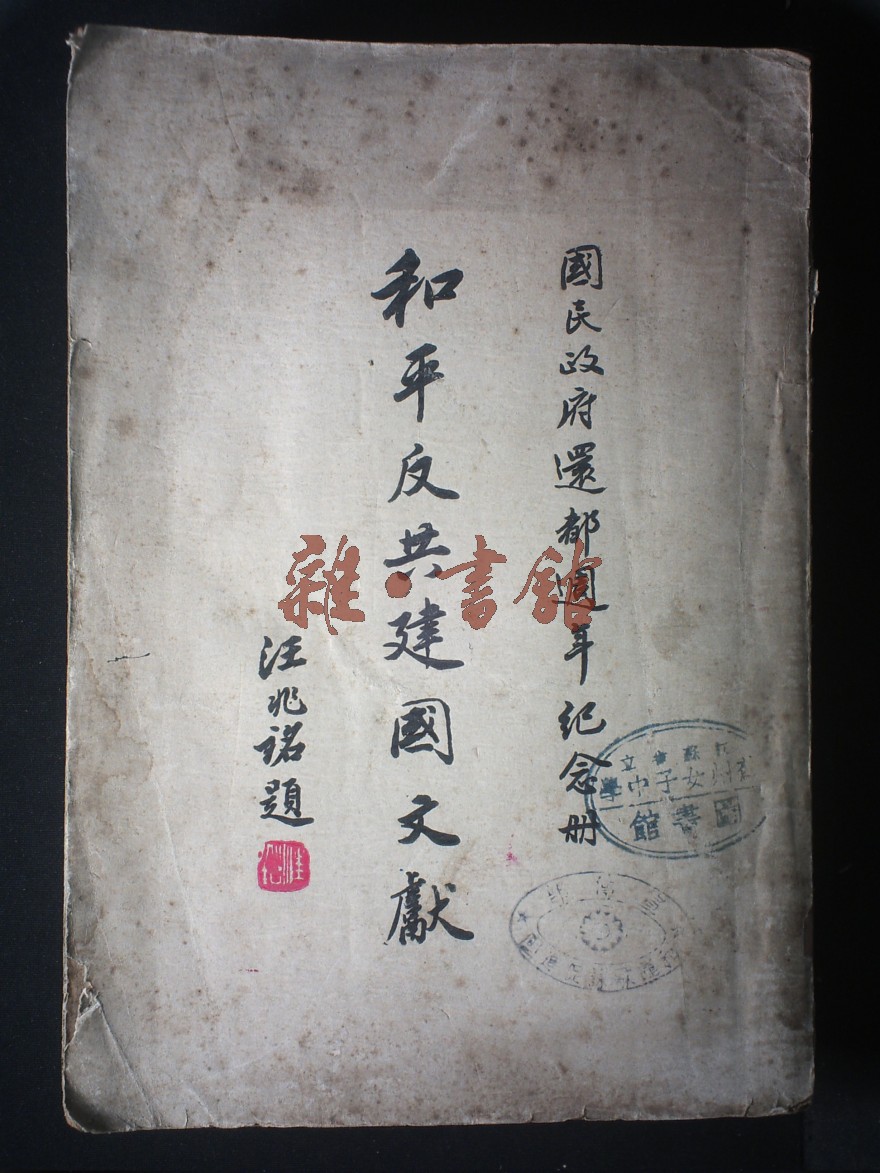 國民政府還都週年紀念册
和平反共建國文獻
汪兆銘題
雜·書館
蘇省立
州女子中學
圖書館